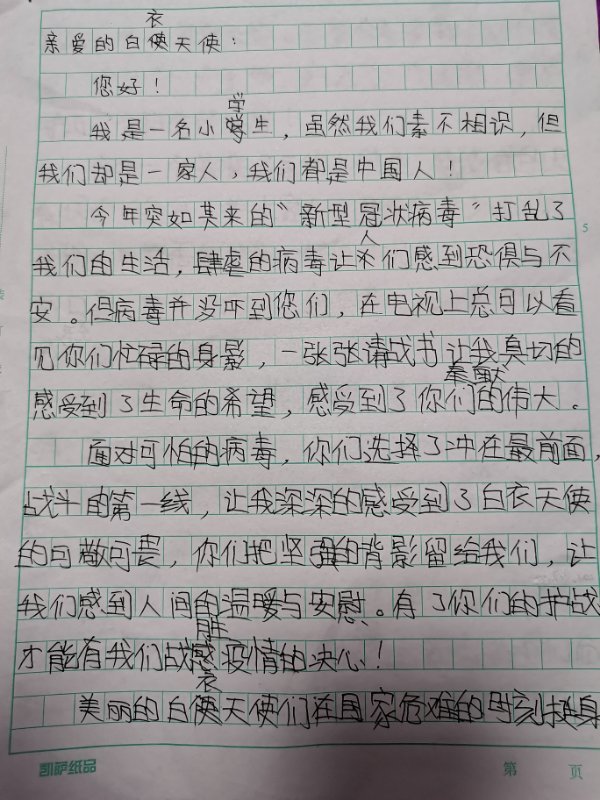 亲爱的白衣天使：
您好！
我是一名小学生，虽然我们素不相识，但
我们却是一家人，我们都是中国人！
今年突如其来的“新型冠状病毒”打乱了
我们的生活，肆虐的病毒让人们感到恐惧与不
安。但病毒并没吓到您们，在电视上总可以看
见你们忙碌的身影，一张张请战书让我真切的
感受到了生命的希望，感受到了你们的伟大。
奉献
面对可怕的病毒，你们选择了冲在最前面，
战斗的第一线，让我深深的感受到了白衣天使
的可敬可畏，你们把坚强的背影留给我们，让
我们感到人间的温暖与安慰。有了你们的护战
才能有我们战胜疫情的决心！
美丽的白衣天使们在国家危难的时刻挺身
凯萨纸品 第 页
5